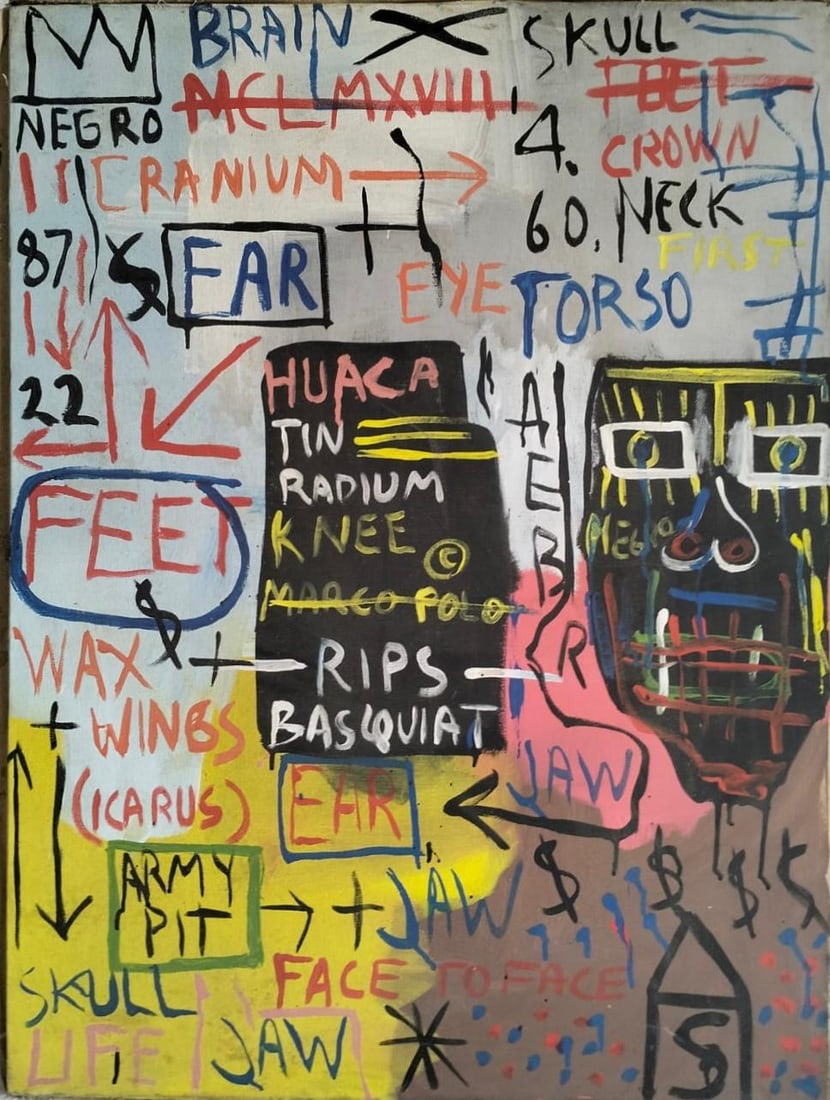 BRAIN SKULL
NEGRO MCLMXVIII FEET
4. CROWN
CRANIUM
60. NECK
87 $ EAR FIRST
EYE TORSO
22
HUACA
TIN
RADIUM
FEET
KNEE ©
NEGRO
MARCO POLO
$
WAX + RIPS
BASQUIAT
+ WINGS
(ICARUS)
EAR JAW
ARMY
PIT + JAW $ $ $
SKULL FACE TO FACE
LIFE JAW $